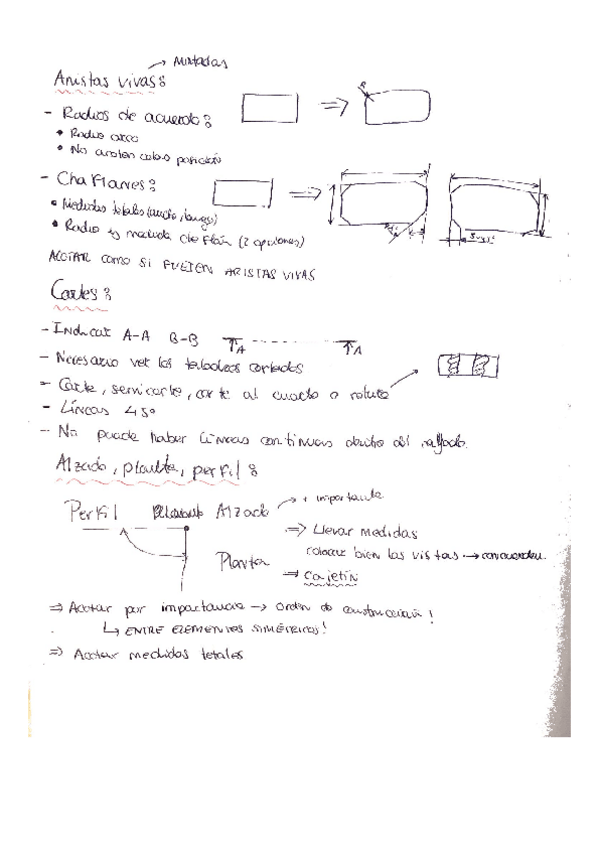 → Matadas
Aristas vivas:
- Radios de acuerdo:
• Radio arco
• No acotan
- Chaflanes:
• Medidas totales (ancho, largo)
• Radio y medida de flán (2 opciones)
ACOTAR COMO SI FUESEN ARISTAS VIVAS
Cortes:
- Indicar A-A B-B A A
- Necesario ver los taladros cortados
- Corte, semicorte, corte al cuarto o rotura
- Líneas 45º
- No puede haber líneas continuas dentro del rallado.
Alzado, planta, perfil:
Perfil Alzado → + importante
⇒ Llevar medidas
Planta colocar bien las vistas → concuerden
⇒ Cajetín
⇒ Acotar por importancia → orden de construcción!
↳ ENTRE ELEMENTOS SIMÉTRICOS!
⇒ Acotar medidas totales